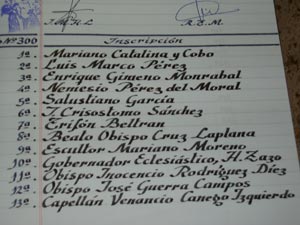 J.M.H.L R.B.M.
Nº300 Inscripción
1º- Mariano Catalina y Cobo
2º- Luis Marco Pérez
3º- Enrique Gimeno Monrabal
4º- Nemesio Pérez del Moral
5º- Salustiano García
6º- J. Crisostomo Sánchez
7º- Erifón Beltran
8º- Beato Obispo Cruz Laplana
9º- Escultor Mariano Moreno
10º- Gobernador Eclesiástico, H. Zazo
11º- Obispo Inocencio Rodríguez Díez
12º- Obispo José Guerra Campos
13º- Capellán Venancio Canego Izquierdo